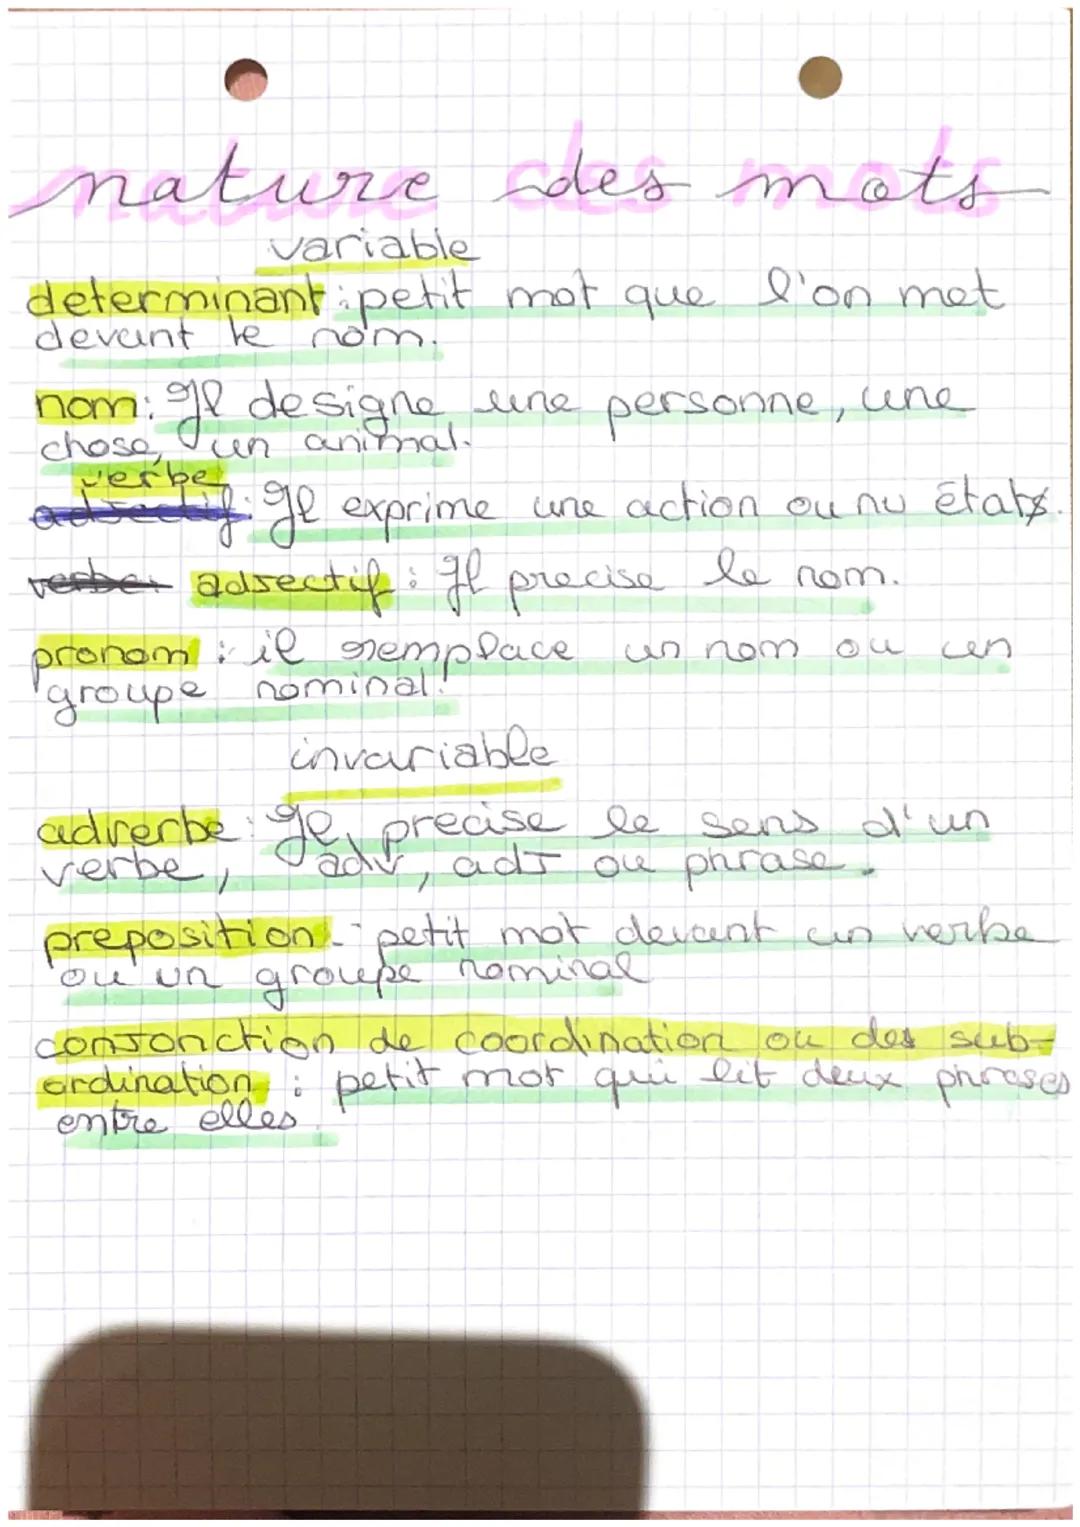 nature des mots
variable
determinant : petit mot que l'on met
devant le nom.
nom : Il designe une personne, une
chose, un animal.
verbe
adjectif : Il exprime une action ou nu états.
verbe : adjectif : Il precise le nom.
pronom : il remplace un nom ou un
groupe nominal.
invariable
adverbe : Il precise le sens d'un
verbe, adv, adj ou phrase.
preposition : petit mot devant un verbe
ou un groupe nominal
conjonction de coordination ou des sub-
ordination : petit mot qui lit deux phrases
entre elles.